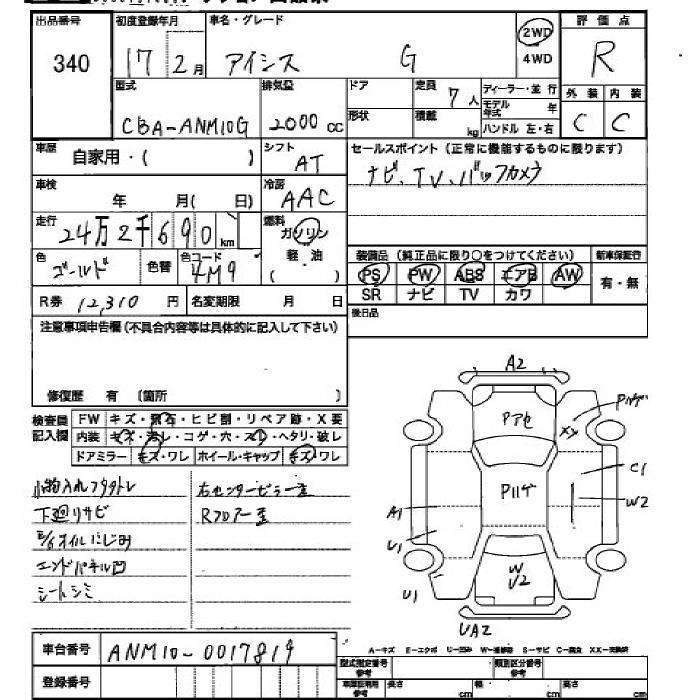 出品番号 初度登録年月 車名・グレード 評価点
340 17 2月 アイシス G 2WD 4WD R
型式 排気量 ドア 定員 ディーラー・並行 外装 内装
CBA-ANM10G 2000cc 形状 7人 モデル年式 年 C C
積載 kg ハンドル 左・右
車歴 自家用・( ) シフト AT セールスポイント(正常に機能するものに限ります)
ナビ、TV、バックカメラ
車検 年 月( 日) 冷房 AAC
走行 24万2千690km 燃料 ガソリン
色 ゴールド 色替 色コード 4M9 軽油 ( ) 装備品(純正品に限り○をつけてください) 新車保証行
PS PW ABS エアB AW 有・無
SR ナビ TV カワ
R券 12,310円 名変期限 月 日 後日品
注意事項申告欄(不具合内容等は具体的に記入して下さい)
修復歴 有 〔箇所 〕
検査員記入欄 FW キズ・飛石・ヒビ割・リペア跡・X要
内装 キズ・汚レ・コゲ・穴・スレ・ヘタリ・破レ
ドアミラー キズ・ワレ ホイール・キャップ キズ・ワレ
小物入れフタ 右センターピラー歪
下廻りサビ Rフロアー歪
E/Gオイルにじみ
エンドパネル凹
シートシミ
A2
Pアセ Pハゲ
メケ
Pハゲ C1
W2
A1
U1
W
U2
U1
UA2
A-キズ E-エクボ U-凹み W-補修跡 S-サビ C-腐食 XX-交換済
車台番号 ANM10-0017819
型式指定番号 参考 類別区分番号 参考
登録番号 車庫証明用 参考 長さ cm 幅 cm 高さ cm